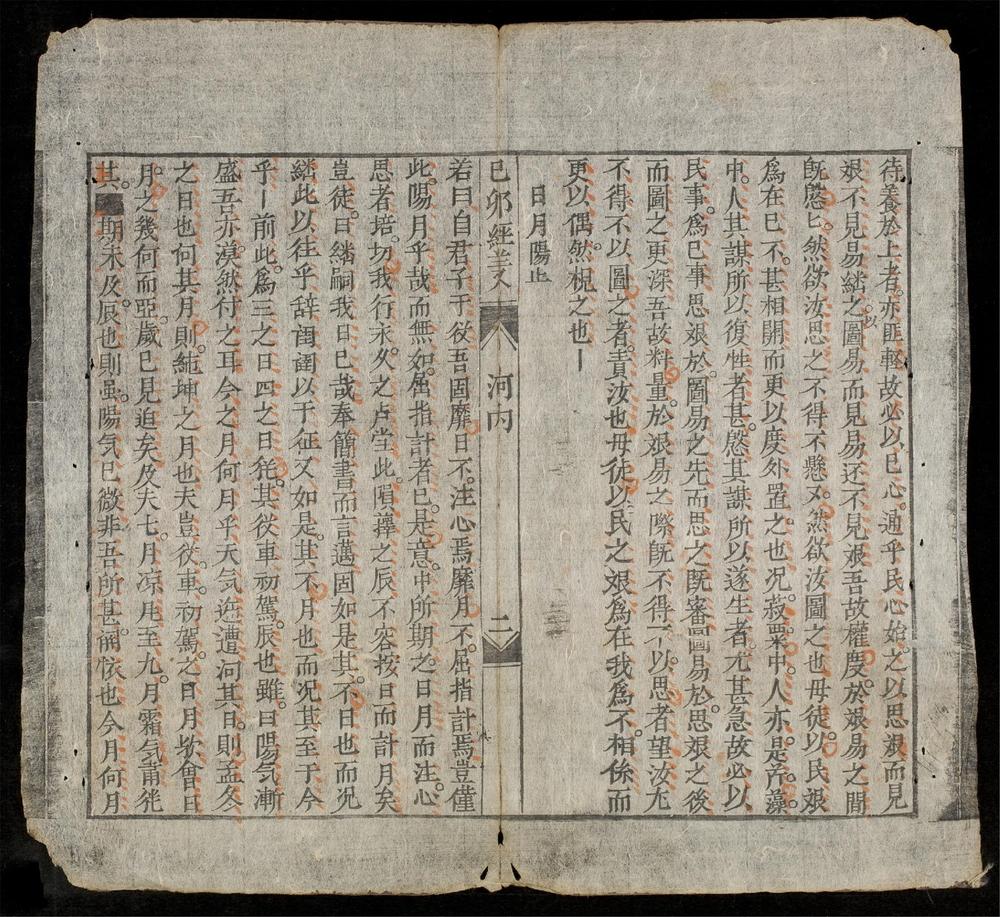 待養於上者亦匪輕故必以已心通乎民心始之以思艱而見
艱不見易繙之以圖易而見易还不見艱吾故權度於艱易之間
旣慇匕然欲汝思之不得不懸又然欲汝圖之也毋徒以民艱
爲在已不甚相開而更以度外置之也况菽粟中人亦是芹藻
中人其謀所以復性者甚慇其謀所以遂生者尤甚急故必以
民事爲已事思艱於圖易之先而思之旣審圖易於思艱之後
而圖之更深吾故料量於艱易之際旣不得不以思者望汝尢
不得不以圖之者責汝也毋徒以民之艱爲在我爲不相係而
更以偶然視之也
日月陽止
已夘經義 河内 二
若曰自君子于役吾固靡日不注心焉靡月不屈指計焉豈僅
此陽月乎哉而無如屈指計者已是意中所期之日月而注心
思者培切我行未久之占尝此隕蘀之辰不容按日而計月矣
豈徒曰繙嗣我日已哉奉簡書而言邁固如是其不日也而况
繙此以往乎辞閨閫以于征又如是其不月也而况其至于今
乎前此爲三之日四之日徃其從車初駕辰也雖曰陽気漸
盛吾亦漠然付之耳今之月何月乎天気迍遭河其日則孟冬
之日也何其月則純坤之月也夫豈從車初駕之日月欤會日
月之幾何而亞歲已見追矣及夫七月凉凨至九月霜気肅徃
其期未及辰也則虽陽気已微非吾所甚痛恢也今月何月